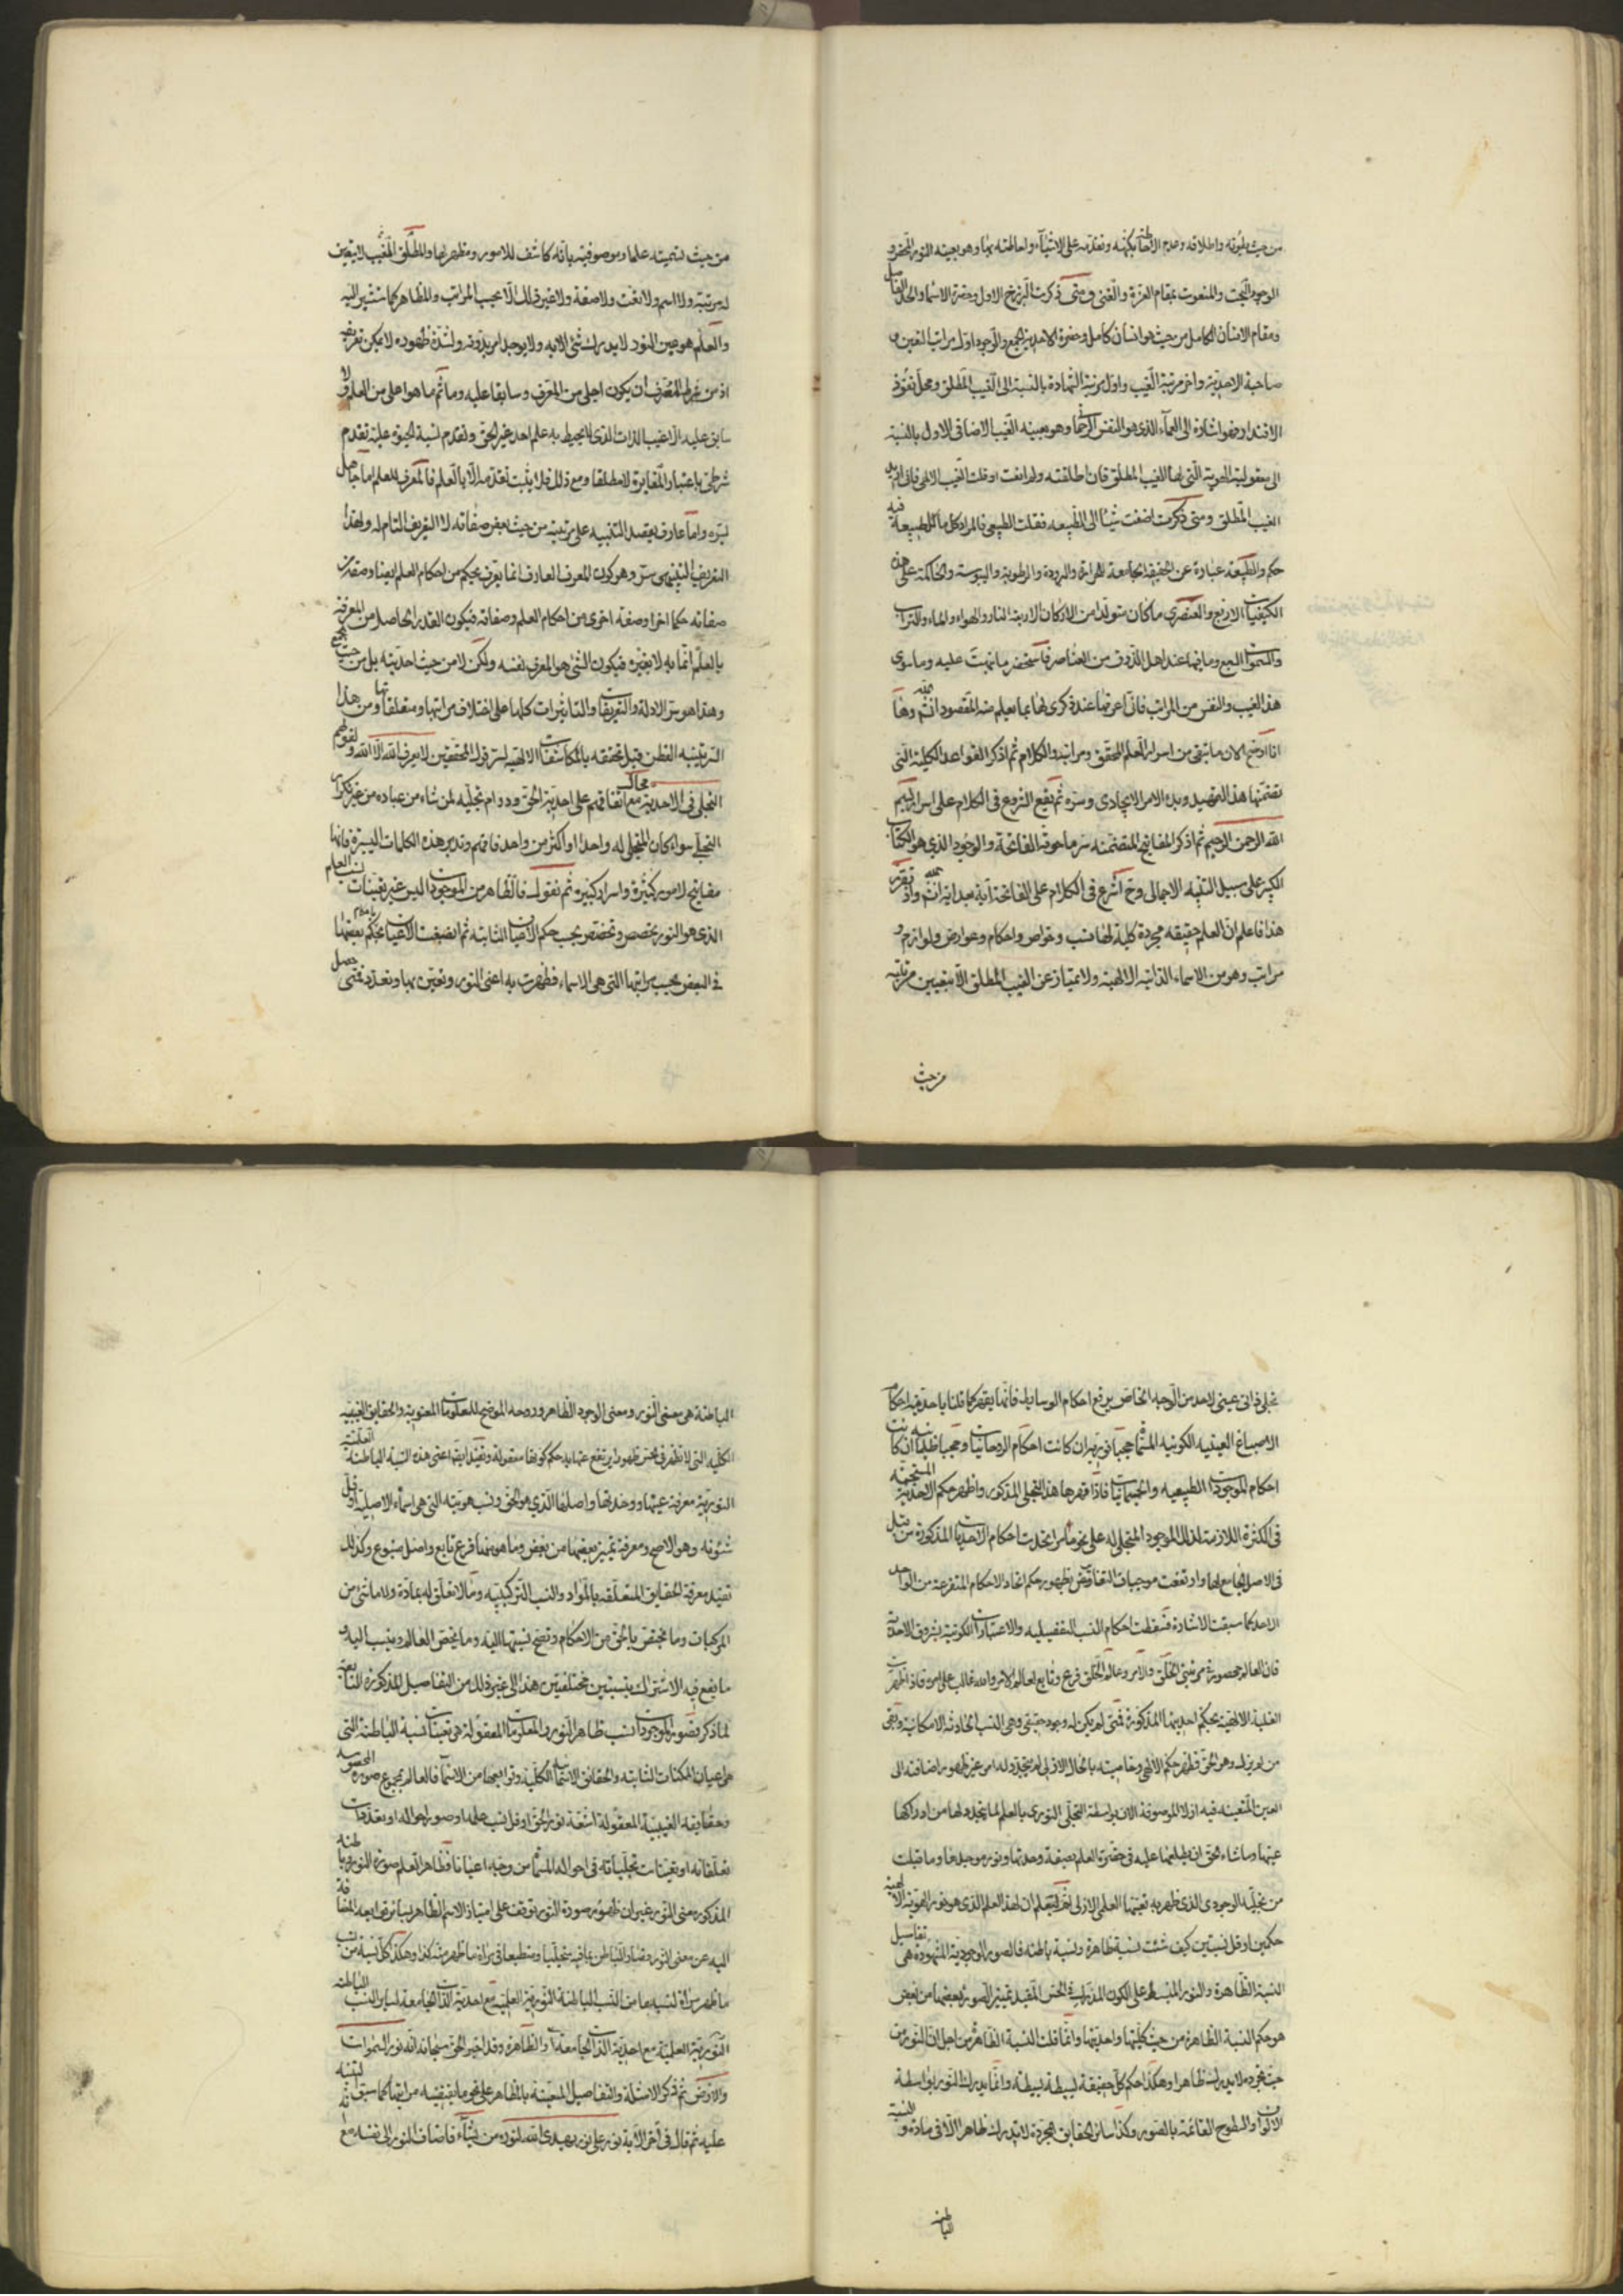 من حيث بطونه واطلاقه وعدم الاحاطة بكنهه وتقدمه على الاشياء واحاطته بها وهو بعينه النور المحض و
الوجود البحت والمنعوت بمقام العزة والغنى ومتى ذكرت البرزخ الاول وحضرة الاسماء والحد الفاصل
ومقام الانسان الكامل من حيث هو انسان كامل وحضرة الاحدية الجمع والوجود اول مراتب التعين و
صاحبة الاحدية واخر مرتبة الغيب واول مرتبة الشهادة بالنسبة الى الغيب المطلق ومحل نفوذ
الاقتدار فهو اشارة الى العماء الذي هو النفس الرحماني وهو بعينه الغيب الاضافي الاول بالنسبة
الى معقولية الهوية التي لها الغيب المطلق فان اطلقته ولم انعت او قلت الغيب الالهي فاني اريد
الغيب المطلق ومتى ذكرت اضفت شيئا الى الطبيعه فقلت الطبيعي فالمراد كل ما للطبيعة فيه
حكم والطبيعة عبارة عن الحقيقة الجامعة للحرارة والبرودة والرطوبة واليبوسة والحاكمة على هذه
الكيفيات الاربع والعنصري ما كان متولدا من الاركان الاربعة النار والهواء والماء والتراب
والسموات السبع وما فيها عند اهل الذوق من العناصر فاستحضر ما نبهت عليه وما سوى
هذا الغيب والنفس من المراتب فاني اعرفها عند ذكرى لها بما يعلم منه المقصود ان شاء الله وها
انا اوضح الان ما تبقى من اسرار العلم المحقق ومراتبه والكلام ثم اذكر القواعد الكلية التي
تضمنها هذا التمهيد وبدء الامر الايجادي وسره ثم يقع الشروع في الكلام على اسرار بسم
الله الرحمن الرحيم ثم اذكر المفاتيح المتضمنة سر ما حوته الفاتحة والوجود الذي هو الكتاب
الكبير على سبيل التنبيه الاجمالي وح اشرع في الكلام على الفاتحة آية بعد اية ان شاء الله واذ تقرر
هذا فاعلم ان العلم حقيقه مجردة كلية لها نسب وخواص واحكام وعوارض ولوازم و
مراتب وهو من الاسماء الذاتيه الالهية ولا يمتاز عن الغيب المطلق الا بتعيين مرتبته
من حيث
من حيث تسميته علما وموصوفيته بانه كاشف للامور ومظهر لها والمطلق المغيب لا يتعين
له مرتبة ولا اسم ولا نعت ولا صفة ولا غير ذلك الا بحسب المراتب والمظاهر كما سنشير اليه
والعلم هو عين النور لا يدرك شئ الا به ولا يوجد امر بدونه ولشدة ظهوره لا يمكن تعريفه
اذ من شرط المعرف ان يكون اجلى من المعرف وسابقا عليه وما ثم ما هو اجلى من العلم ولا
سابق عليه الا غيب الذات الذي لا يحيط به علم احد غير الحق وتقدم نسبة الحيوة عليه تقدم
شرطي باعتبار المغايرة لا مطلقا ومع ذلك فلا يثبت تقدمه الا بالعلم فالمعرف للعلم اما جاهل
بسره واما عارف يقصد التنبيه على مرتبته من حيث بعض صفاته لا التعريف التام له ولهذا
التعريف التنبيهي سر وهو كون المعرف العارف انما يعرف بحكم من احكام العلم اوصفة من
صفاته حكما اخر او صفة اخرى من احكام العلم وصفاته فيكون القدر الحاصل من المعرفة
بالعلم انما به لا بغيره فيكون الشئ هو المعرف نفسه ولكن لا من حيث احديته بل من حيث
وهذا هو سر الادلة والتعريفات والتاثيرات كلها على اختلاف مراتبها ومتعلقاتها ومن هذا
السر ينتبه الفطن قبل تحققه بالمكاشفات الالهيه لسر قول المحققين لا يعرف الله الا الله ولقولهم
التجلي في الاحدية محال مع اتفاقهم على احدية الحق ودوام تجليه لمن شاء من عباده من غير تكرار
التجلي سواء كان المتجلى له واحدا او اكثر من واحد فافهم وتدبر هذه الكلمات اليسيرة فانها
مفاتيح لامور كثيرة واسرار كبيرة ثم نقول فالظاهر من الموجودات ليس غير تعينات نسب العلم
الذي هو النور تخصص وتخصص بحسب حكم الاعيان الثابته ثم انصبغت الاعيان باحكام بعضها
في البعض بحسب مراتبها التي هي الاسماء فظهرت به اعني النور وتعين بها وتعدد فمتى حصل
تجلي ذاتي غيبي لاحد من الوجه الخاص يرفع احكام الوسايط فانما يقهر كما قلنا باحديته احكام
الاصباغ العينيه الكونيه المسماة حجبا نورية ان كانت احكام الروحانيات وحجبا ظلمانية ان كانت
احكام الموجودات الطبيعيه والجسمانيات فاذا قهرها هذا التجلي المذكور واظهر حكم الاحدية المستجنة
في الكثرة اللازمة لذلك الموجود المتجلى له على نحو ما مر اتحدت احكام الاحديات المذكورة من قبل
في الاصل الجامع لها وارتفعت موجبات التغاير بظهور حكم اتحاد الاحكام المتفرعة من الواحد
الاحد كما سبقت الاشارة فسقطت احكام النسب التفصيليه والاعتبارات الكونية بشروق الاحدية
فان العالم محصور في مرتبتي الخلق والامر وعالم الخلق فرع وتابع لعالم الامر والله غالب على امره فاذا ظهرت
الغلبة الالهية بحكم احديتها المذكورة فنى من لم يكن له وجود حقيقي وهي النسب الحادثه الامكانية وبقي
من لم يزل وهو الحق فظهر حكم الالهي وخاصيته بالحال الازلي لم يتجدد له امر غير ظهور اضافته الى
العين المتعينه فيه ازلا الموصوفة الان بواسطة التجلي النوري بالعلم لما يتجدد لها من ادراكها
عينها وما شاء الحق ان يطلعها عليه في حضرة العلم بصفة وحدتها ونور موجدها وما قبلت
من تجليه الوجودي الذي ظهر به تعينها العلمي الازلي ثم ليعلم ان لهذا العلم الذي هو نور الهوية الالهية
حكمين او قل نسبتين كيف شئت نسبة ظاهرة ونسبة باطنه فالصور الوجودية المشهودة هي تفاصيل
النسبة الظاهرة والنور المنبسط على الكون المدرك في الحس المفيد تمييز الصور بعضها من بعض
هو حكم النسبة الظاهرة من حيث كليتها واحديتها وانما قلت النسبة الظاهرة من اجل ان النور من
حيث تجرده لا يدرك ظاهرا وهكذا حكم كل حقيقة بسيطة بسيطة وانما يدرك النور بواسطة
الالوان والسطوح القائمة بالصور وكذا ساير الحقايق المجردة لا يدرك ظاهرا الا في مادة و النسبة
الباطنه
الباطنة هي معنى النور ومعنى الوجود الظاهر وروحه الموضح للمعلومات المعنوية والحقايق الغيبيه
الكليه التي لا تظهر في الحس ظهورا يرتفع عنها به حكم كونها معقوله وتفيد ايضا اعني هذه النسبة الباطنة العلمية
النورية معرفة عينها ووحدتها واصلها الذي هو الحق ونسب هويته التي هي اسماؤه الاصلية او قل
شئونه وهو الاصح ومعرفة تميز بعضها من بعض وما هو منها فرع تابع واصل متبوع وكذلك
تفيد معرفة الحقايق المتعلقه بالمواد والنسب التركيبيه وما لا تعلق له بمادة ولا ماشئ من
المركبات وما يختص بالحق من الاحكام وتصح نسبتها اليه وما يخص العالم وينسب اليه و
ما يقع فيه الاشتراك بنسبتين مختلفتين هذا الى غير ذلك من التفاصيل المذكورة التابعة
لما ذكر فصور الموجودات نسب ظاهر النور والمعلومات المعقوله هي تعينات نسبة الباطنة التي
هي اعيان الممكنات الثابته والحقايق الاسمائية الكلية وتوابعها من الاسماء فالعالم بمجموع صوره المحسوسه
وحقايقه الغيبية المعقوله اشعة نور الحق او قل نسب علمه او صور احواله او تعددات
تعلقاته او تعينات تجلياته في احواله المسماة من وجه اعيانا فظاهر العلم صورة النور وباطنه
المذكور معنى النور غير ان ظهور صورة النور توقف على امتياز الاسم الظاهر بساير توابعه المضافة
اليه عن معنى النور وصار الباطن بما فيه متجليا ومنطبعا في مرآة ما ظهر منه كذا وهكذا كل نسبة من نسب
ما ظهر مرآة لنسبة ما من النسب الباطنة النورية العلمية مع احدية الذات الجامعة لساير النسب الباطنه
النورية العلمية مع احدية الذات الجامعة لها والظاهرة وقد اخبر الحق سبحانه انه نور السموات
والارض ثم ذكر الامثلة والتفاصيل المتعينة بالمظاهر على نحو ما يقتضيه مراتبها كما سبق التنبيه
عليه ثم قال في آخر الآية نور على نور يهدي الله لنوره من يشاء فاضاف النور الى نفسه مع انه